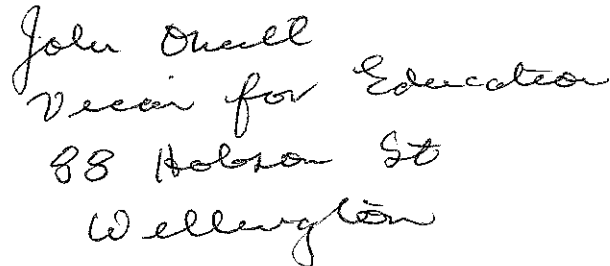 John Oneill
Vicar for Education
88 Hobson St
Wellington